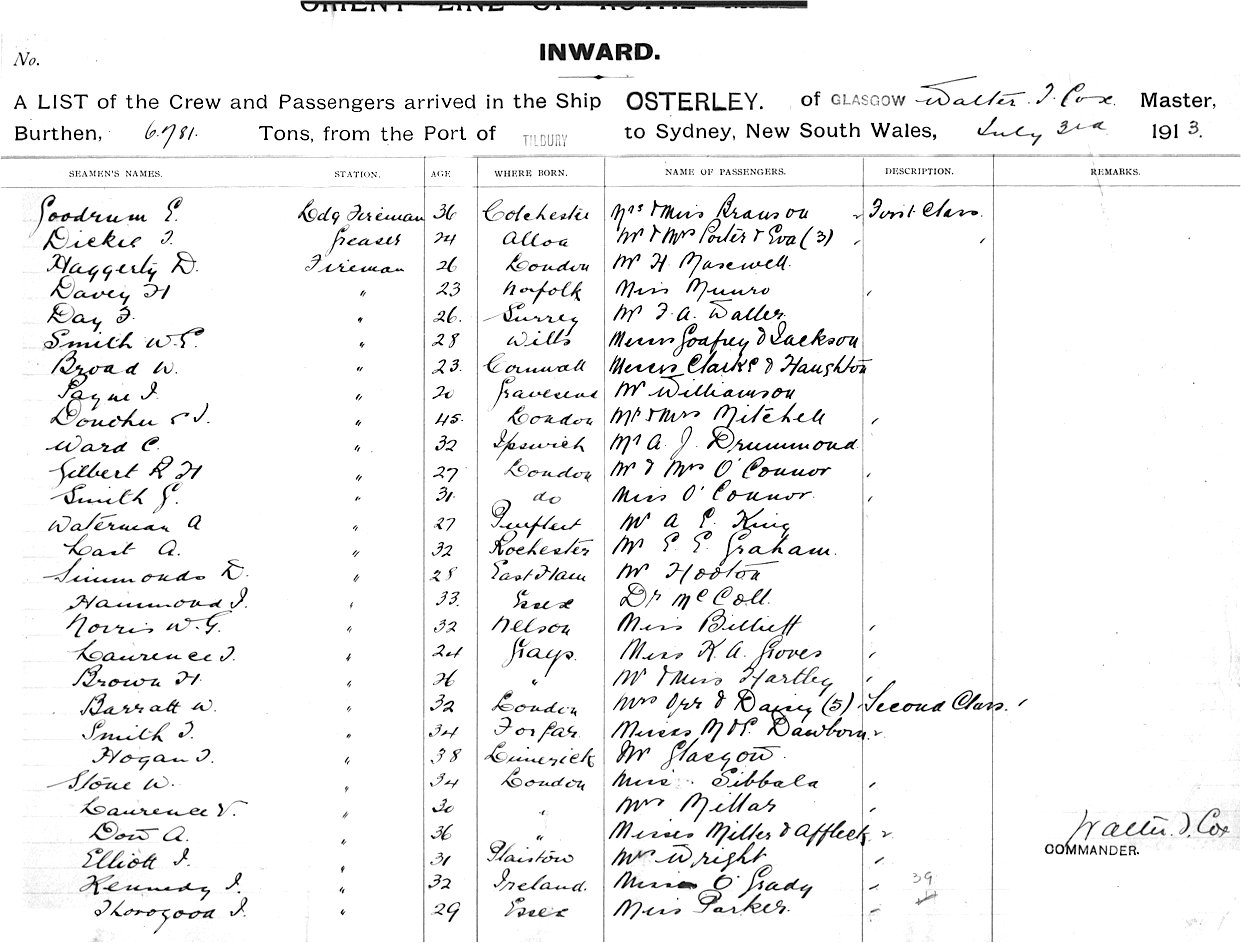 ORIENT LINE OF ROYAL MAIL
INWARD.
No.
A LIST of the Crew and Passengers arrived in the Ship OSTERLEY. of GLASGOW Walter. J. Cox. Master,
Burthen, 6.781. Tons, from the Port of TILBURY to Sydney, New South Wales, July 3rd 1913.
SEAMEN'S NAMES. STATION. AGE WHERE BORN. NAME OF PASSENGERS. DESCRIPTION. REMARKS.
Goodrum E. Ldg Fireman 36 Colchester Mrs & Miss Branson First Class.
Dickie J. Greaser 24 Alloa Mr & Mrs Porter & Eva (3)
Haggerty D. Fireman 26 London Mr H. Maxwell.
Davey H " 23 Norfolk Miss Munro
Day F. " 26. Surrey Mr F. A. Waller.
Smith W. E. " 28 Wilts Messrs Godfrey & Jackson
Broad W. " 23. Cornwall Messrs Clarke & Haughton
Payne J. " 20 Gravesend Mr Williamson
J. " 45. London Mr & Mrs Mitchell
Ward C. " 32 Ipswich Mr A. J. Drummond
Gilbert R H " 27 London Mr & Mrs O'Connor
Smith G. " 31. do Miss O'Connor.
Waterman A " 27 Mr A E. King
Last A. " 32 Rochester Mr E. E. Graham.
Simmonds D. " 28 East Ham Mr Hooton
Hammond J. " 33. Essex Dr McColl.
Norris W. G. " 32 Nelson Miss
Laurence J. " 24 Grays. Miss K. A. Groves
Brown H. " 26 " Mr & Miss Hartley
Barratt W. " 32 London Mrs Orr & Daisy (5) Second Class.
Smith J. " 34 Forfar. Misses M & P. Dawborn
Hogan J. " 38 Limerick Mr Glasgow.
Stone W. " 34 London Miss Sibbald
Laurence V. " 30 " Mrs Millar
Dow A. " 36 " Misses Miller & Affleck Walter. J. Cox
Elliott J. " 31 Plaistow Mr Wright COMMANDER.
Kennedy J. " 32 Ireland. Miss O'Grady 39
Thorogood J. " 29 Essex Miss Parker.